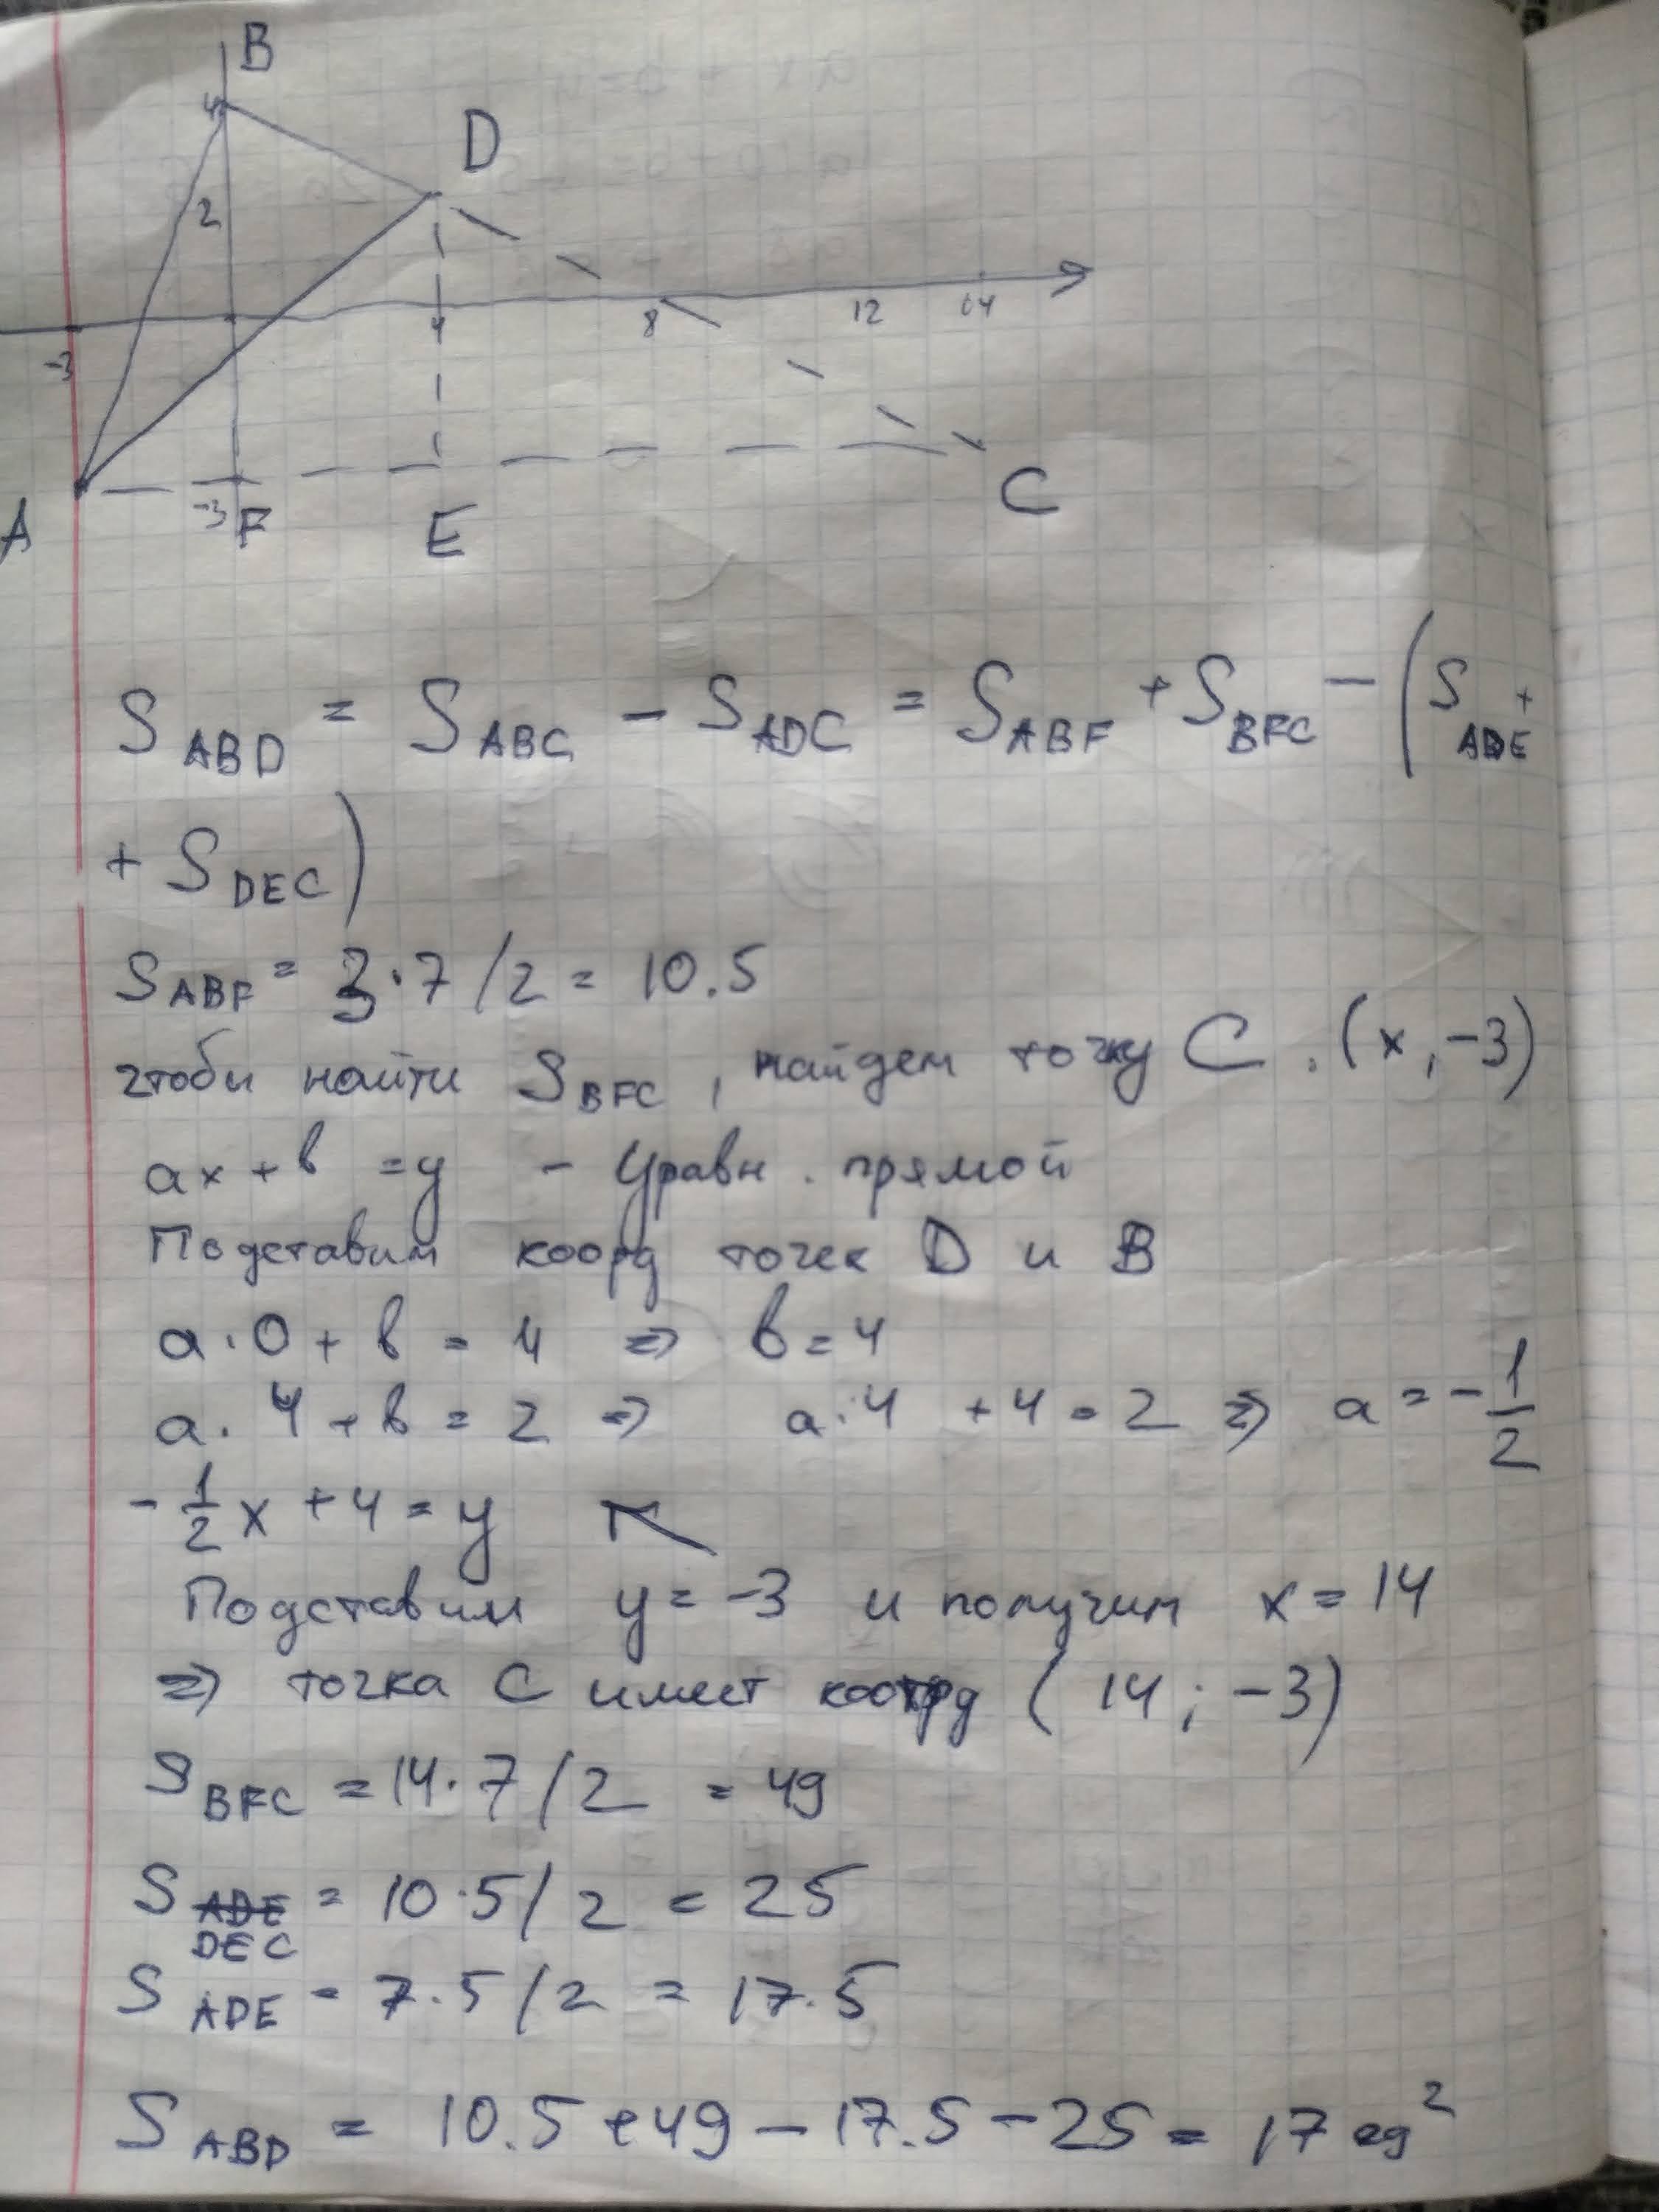 B
4
D
2
-3
4
8
12
14
A
-3
F
E
C
S ABD = S ABC - S ADC = S ABF + S BFC - (S ADE +
+ S DEC)
S ABF = 3·7/2 = 10.5
чтоби найти S BFC, найдем точку C. (x, -3)
ax + b = y - Уравн. прямой
Подставим коорд точек D и B
a·0 + b = 4 => b = 4
a·4 + b = 2 => a·4 + 4 = 2 => a = -1/2
-1/2 x + 4 = y
Подставим y = -3 и получим x = 14
=> точка C имеет коорд (14; -3)
S BFC = 14·7/2 = 49
S ADE DEC = 10·5/2 = 25
S ADE = 7·5/2 = 17.5
S ABD = 10.5 + 49 - 17.5 - 25 = 17 ед²